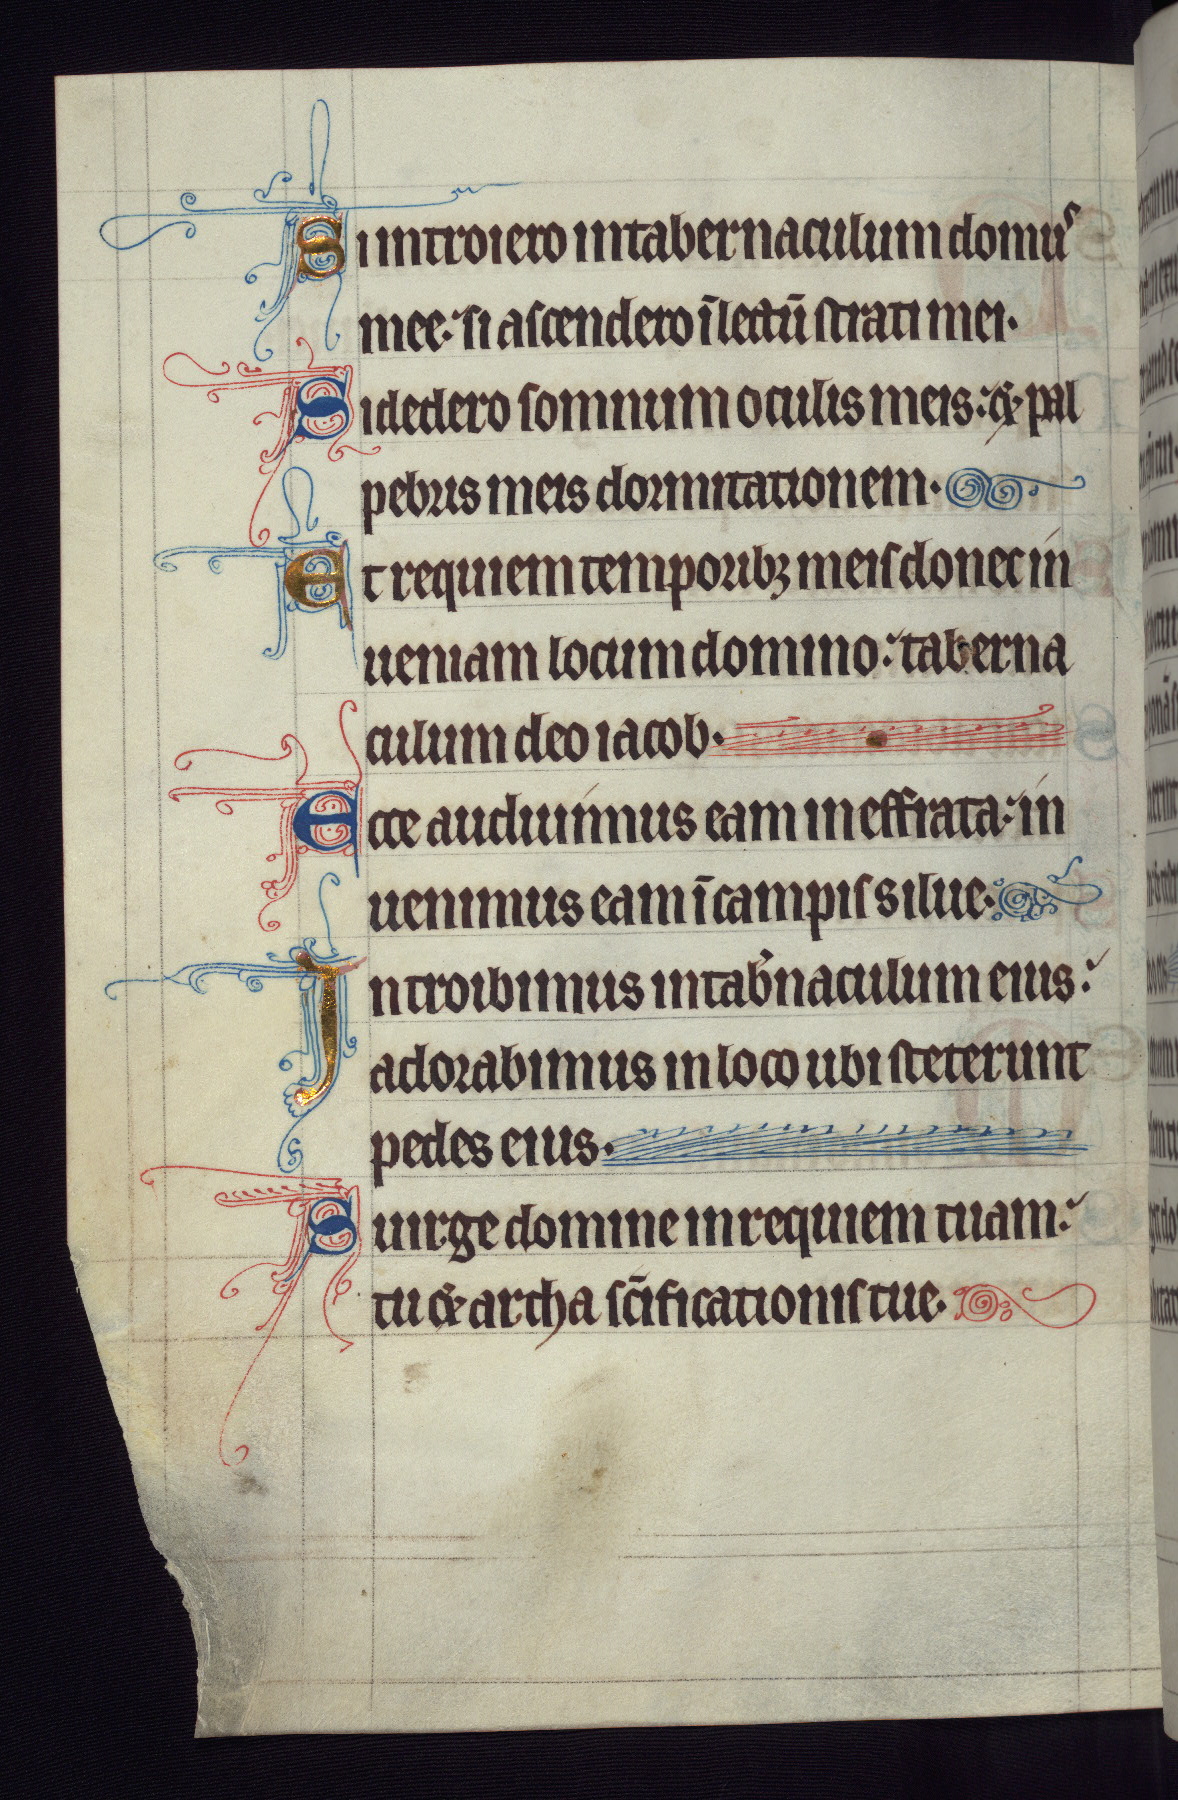 Si introiero in tabernaculum domus
mee. si ascendero ī lectū strati mei.
Si dedero somnum oculis meis: & pal
pebris meis dormitationem.
Et requiem temporibꝫ meis donec in
ueniam locum domino: taberna
culum deo iacob.
Ecce audiuimus eam in effrata. in
uenimus eam ī campis silue.
Introibimus in tab̾naculum eius:
adorabimus in loco ubi steterunt
pedes eius.
Suirge domine in requiem tuam:
tu & archa sc̄ificationis tue.